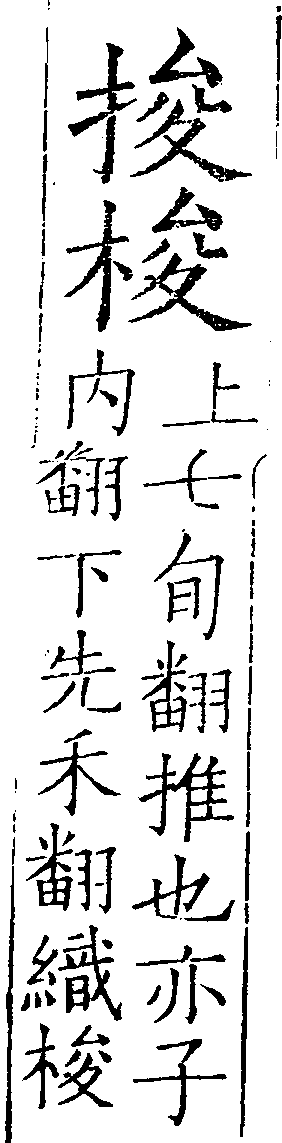 捘梭
上七旬翻推也亦子
内翻下先禾翻織梭